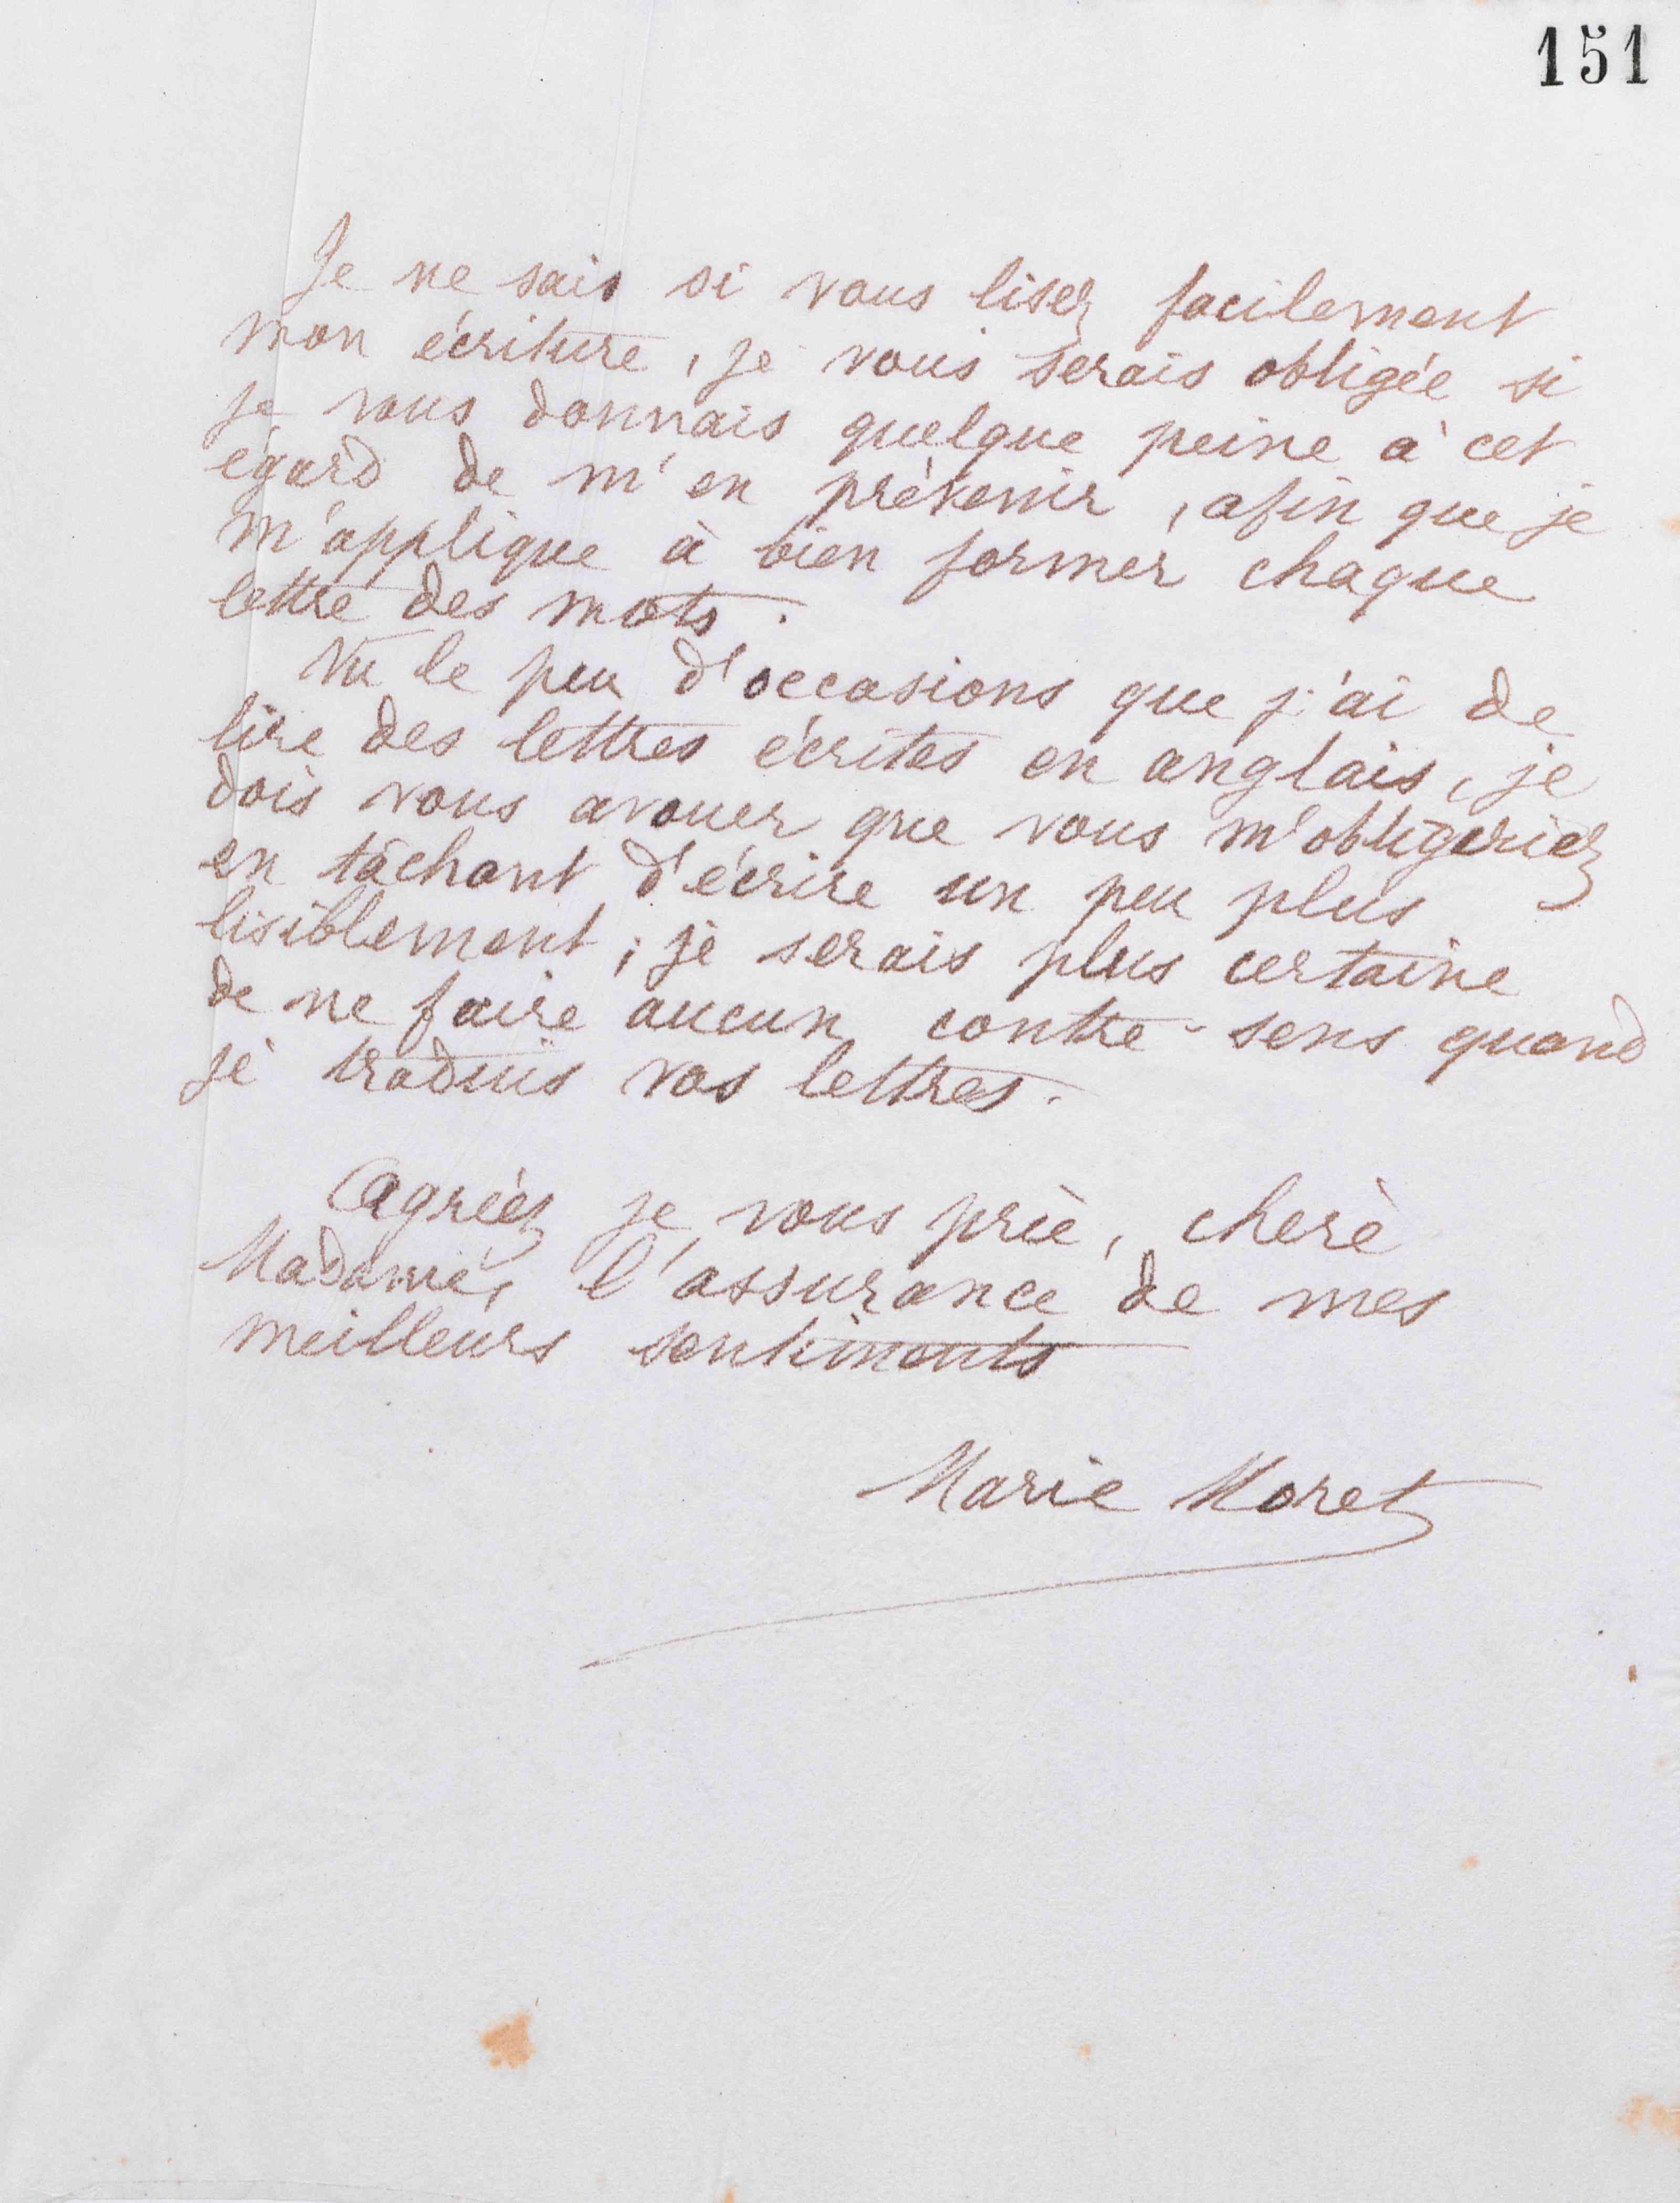 151
Je ne sais si vous lisez facilement
mon écriture, je vous serais obligée si
je vous donnais quelque peine à cet
égard de m'en prévenir, afin que je
m'applique à bien former chaque
lettre des mots.
Vu le peu d'occasions que j'ai de
lire des lettres écrites en anglais, je
dois vous avouer que vous m'obligeriez
en tâchant d'écrire un peu plus
lisiblement; je serais plus certaine
de ne faire aucun contre-sens quand
je traduis vos lettres.
Agréez je vous prie, chère
Madame, l'assurance de mes
meilleurs sentiments
Marie Moret